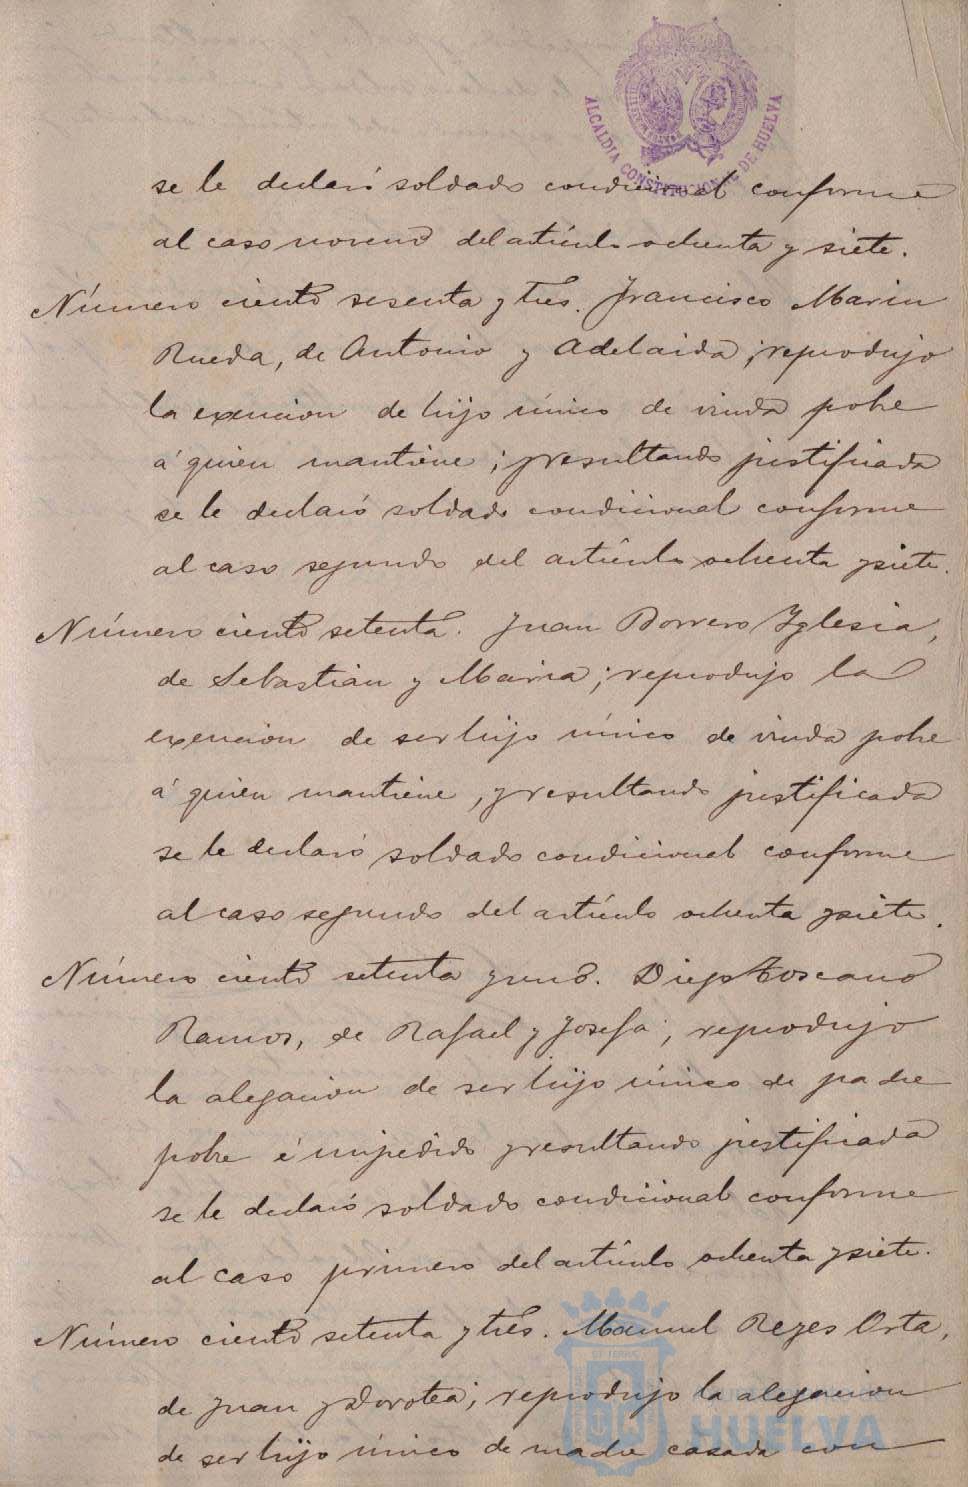 ALCALDIA CONSTITUCIONAL DE HUELVA
se le declaró soldado condicional conforme
al caso noveno del artículo ochenta y siete.
Número ciento sesenta y tres. Francisco Marin
Rueda, de Antonio y Adelaida; reprodujo
la exencion de hijo único de viuda pobre
á quien mantiene; y resultando justificada
se le declaró soldado condicional conforme
al caso segundo del artículo ochenta y siete.
Número ciento setenta. Juan Borrero Yglesia,
de Sebastian y Maria; reprodujo la
exencion de ser hijo único de viuda pobre
á quien mantiene, y resultando justificada
se le declaró soldado condicional conforme
al caso segundo del artículo ochenta y siete.
Número ciento setenta y uno. Diego Toscano
Ramos, de Rafael y Josefa; reprodujo
la alegacion de ser hijo único de padre
pobre é impedido y resultando justificada
se le declaró soldado condicional conforme
al caso primero del artículo ochenta y siete.
Número ciento setenta y tres. Manuel Reyes Orta,
de Juan y Dorotea; reprodujo la alegacion
de ser hijo único de madre casada con
HUELVA